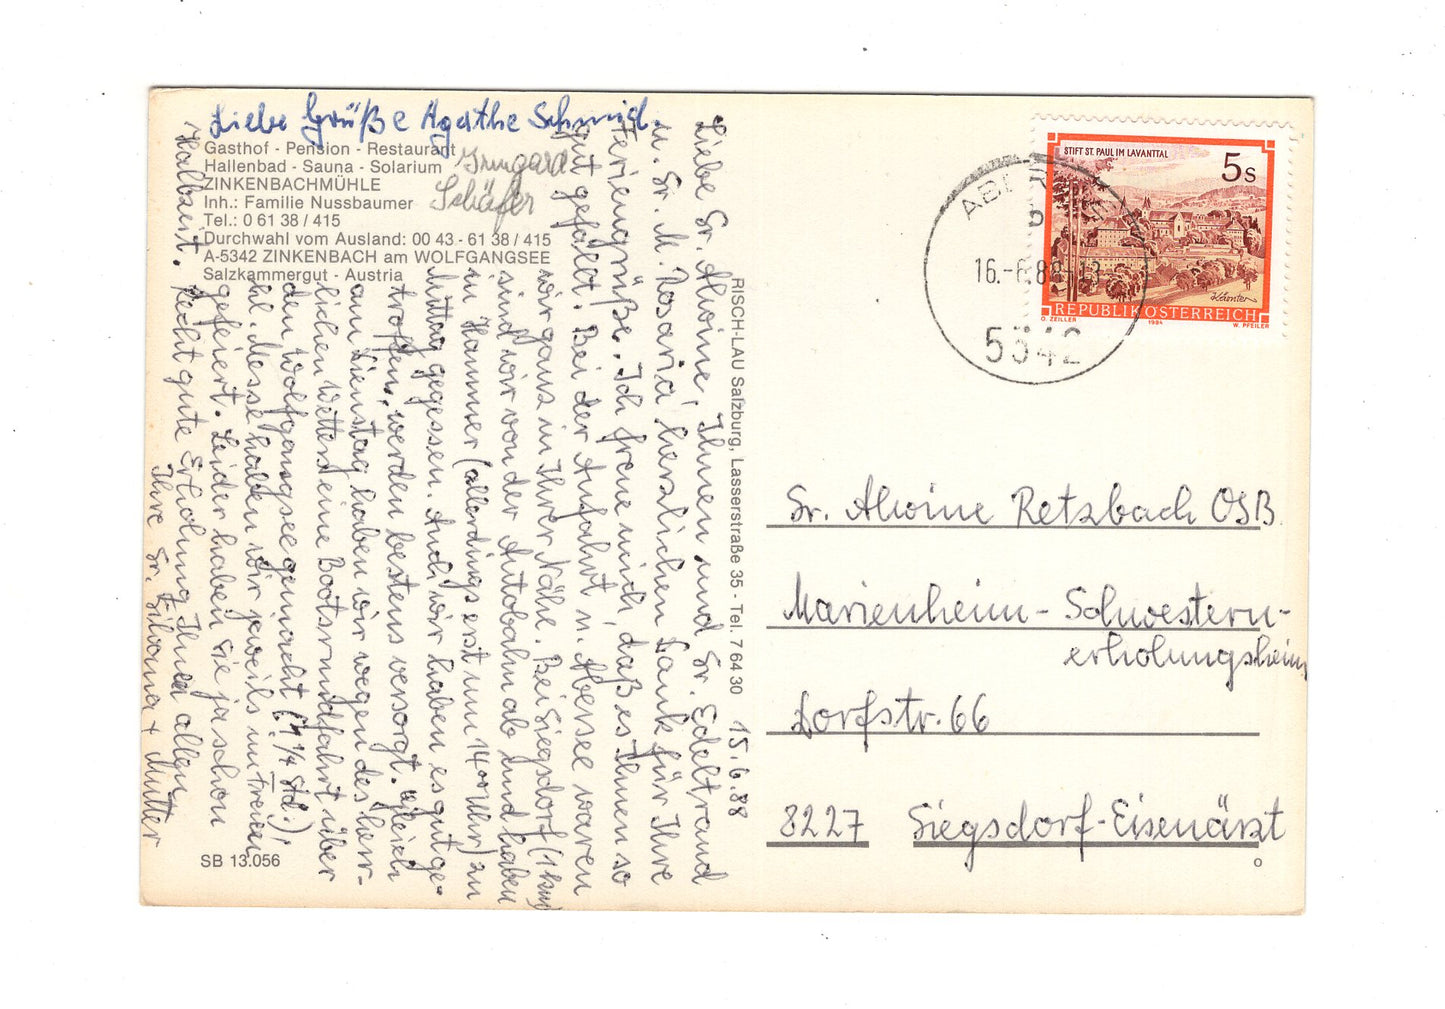 Liebe Grüße Agathe Schmid.
Irmgard
Schäfer
Gasthof - Pension - Restaurant
Hallenbad - Sauna - Solarium
ZINKENBACHMÜHLE
Inh.: Familie Nussbaumer
Tel.: 0 61 38 / 415
Durchwahl vom Ausland: 00 43 - 61 38 / 415
A-5342 ZINKENBACH am WOLFGANGSEE
Salzkammergut - Austria
15.6.88
Liebe Sr. Alwine, Ihnen und Sr. Edeltraud
u. Sr. M. Rosaria, herzlichen Dank für Ihre
Feriengrüße. Ich freue mich, daß es Ihnen so
gut gefällt. Bei der Anfahrt n. Abersee waren
wir ganz in Ihrer Nähe. Bei Siegsdorf (1 km)
sind wir von der Autobahn ab und haben
in Hammer (allerdings erst um 14°° Uhr) zu
Mittag gegessen. Auch wir haben es gut ge-
troffen, werden bestens versorgt. Gleich
am Dienstag haben wir wegen des herr-
lichen Wetters eine Bootsrundfahrt über
den Wolfgangsee gemacht (1¼ Std.)!
Hl. Messe haben wir jeweils im Freien
gefeiert. Leider haben Sie ja schon
Halbzeit. Recht gute Erholung Ihnen allen
Ihre Sr. Silvana + Mutter
SB 13.056
RISCH-LAU Salzburg, Lasserstraße 35 - Tel. 7 64 30
STIFT ST. PAUL IM LAVANTTAL
5 S
Kärnten
REPUBLIK ÖSTERREICH
O. ZEILLER 1984 W. PFEILER
16.-6.88-13
5342
Sr. Alwine Retzbach OSB
Marienheim - Schwestern-
erholungsheim
Dorfstr. 66
8227 Siegsdorf-Eisenärzt